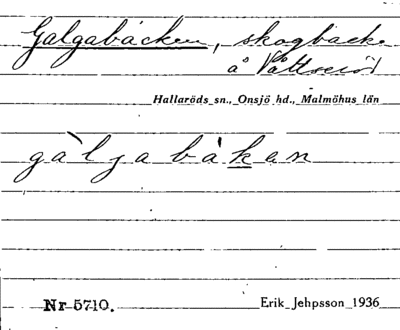 Galgabacken, skogbacke
å Vättseröd
Hallaröds sn., Onsjö hd., Malmöhus län
gàljabàken
Nr 5710. Erik Jeppsson 1936